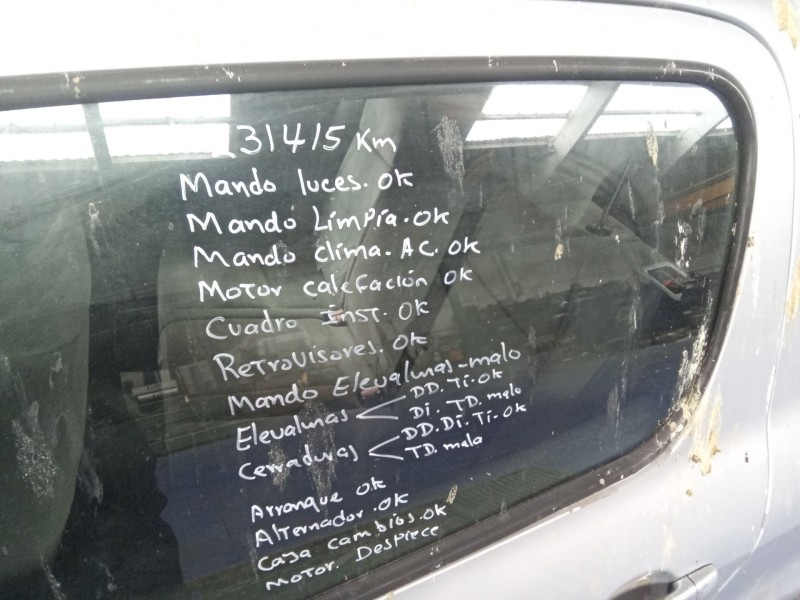 231415 Km
Mando luces. OK
Mando Limpia. OK
Mando clima. AC. OK
Motor calefación OK
Cuadro inst. OK
Retrovisores. OK
Mando Elevalunas-malo
Elevalunas < DD. Ti. OK
Di. TD. malo
Cerraduras < DD. Di. Ti. OK
TD. malo
Arranque OK
Alternador. OK
Caja cambios. OK
Motor. Despiece